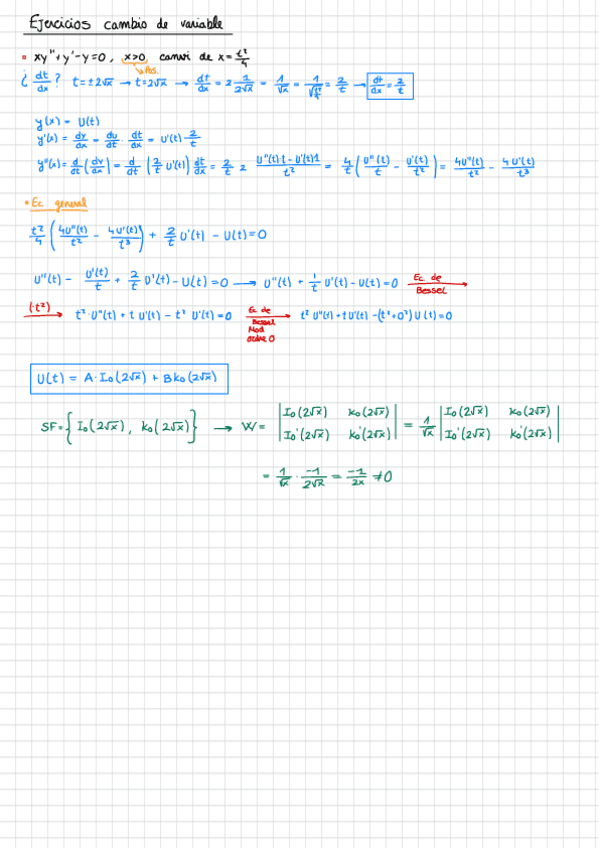 Ejercicios cambio de variable
xy''+y'-y=0, x>0 canvi de x=t²/4
Pos.
¿ dt/dx ? t=±2√x → t=2√x → dt/dx = 2 1/(2√x) = 1/√x = 1/√(t²/4) = 2/t → dt/dx = 2/t
y(x) = U(t)
y'(x) = dy/dx = du/dt · dt/dx = U'(t) 2/t
y''(x) = d/dt (dy/dx) = d/dt (2/t U'(t)) dt/dx = 2/t 2 (U''(t)·t - U'(t)1)/t² = 4/t (U''(t)/t - U'(t)/t²) = 4U''(t)/t² - 4U'(t)/t³
• Ec. general
t²/4 (4U''(t)/t² - 4U'(t)/t³) + 2/t U'(t) - U(t)=0
U''(t) - U'(t)/t + 2/t U'(t) - U(t)=0 → U''(t) + 1/t U'(t) - U(t)=0 Ec. de Bessel →
(·t²) → t²·U''(t) + t U'(t) - t² U'(t)=0 Ec de Bessel Mod ordre 0 → t² U''(t) + t U'(t) - (t²+0²) U(t)=0
U(t) = A·I₀(2√x) + B k₀(2√x)
SF={ I₀(2√x), k₀(2√x) } → W= | I₀(2√x) k₀(2√x) | = 1/√x | I₀(2√x) k₀(2√x) |
| I₀'(2√x) k₀'(2√x) | | I₀'(2√x) k₀'(2√x) |
= 1/√x · -1/(2√x) = -1/2x ≠0